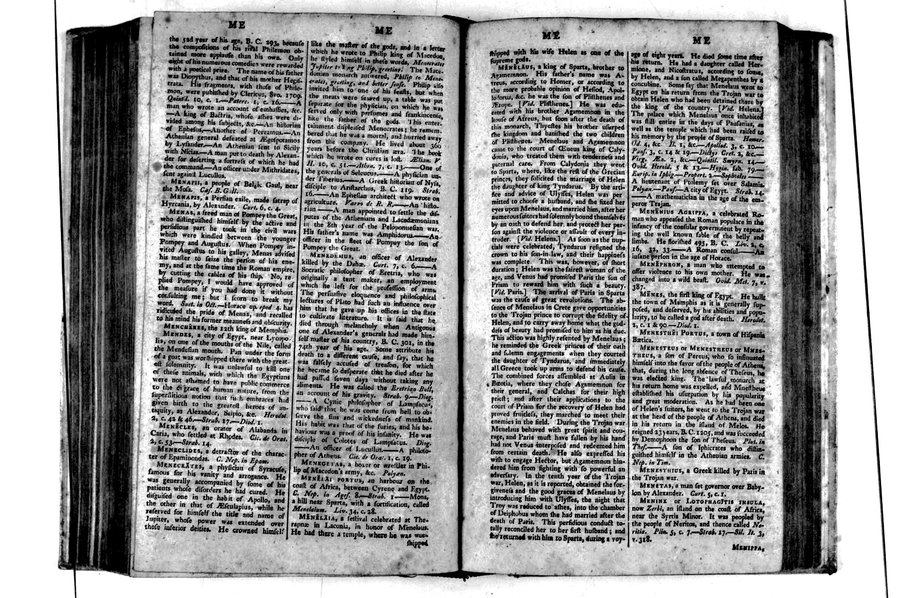 ME
ME
the 52d year of his age, B. C. 293, because
the compositions of his rival Philemon ob-
tained more applause than his own. Only
eight of his numerous comedies were rewarded
with a poetical prize. The name of his father
was Diopythus, and that of his mother Hegis-
trata. His fragments, with those of Phile-
mon, were published by Clericus, 8vo. 1709.
Quintil. 10, c. 1.—Paterc. 1, c. 16.—A
man who wrote an account of embassies, &c.
—A king of Bactria, whose ashes were di-
vided among his subjects, &c.—An historian
of Ephesus.—Another of Pergamus.—An
Athenian general defeated at Ægospotamos
by Lysander.—An Athenian sent to Sicily
with Nicias.—A man put to death by Alexan-
der for deserting a fortress of which he had
the command.—An officer under Mithridates,
sent against Lucullus.
MENAPII, a people of Belgic Gaul, near
the Mosa. Cæs. B. Gall.
MENAPIS, a Persian exile, made satrap of
Hyrcania, by Alexander. Curt. 6, c. 4.
MENAS, a freed man of Pompey the Great,
who distinguished himself by the active and
perfidious part he took in the civil wars
which were kindled between the younger
Pompey and Augustus. When Pompey in-
vited Augustus to his galley, Menas advised
his master to seize the person of his ene-
my, and at the same time the Roman empire,
by cutting the cables of his ship. No, re-
plied Pompey, I would have approved of
the measure if you had done it without
consulting me; but I scorn to break my
word. Suet. in Oct.—Horace in epod. 4 has
ridiculed the pride of Menas, and recalled
to his mind his former meanness and obscurity.
MENCHERES, the 12th king of Memphis.
MENDES, a city of Egypt, near Lycopo-
lis, on one of the mouths of the Nile, called
the Mendesian mouth. Pan under the form
of a goat was worshipped there with the great-
est solemnity. It was unlawful to kill one
of these animals, with which the Egyptians
were not ashamed to have public commerce
to the disgrace of human nature, from the
superstitious notion that such embraces had
given birth to the greatest heroes of an-
tiquity, as Alexander, Scipio, &c. Herodot.
2, c. 42 & 46.—Strab. 17.—Diod. 1.
MENĔCLES, an orator of Alabanda in
Caria, who settled at Rhodes. Cic. de Orat.
2, c. 53.—Strab. 14.
MENECLIDES, a detractor of the charac-
ter of Epaminondas. C. Nep. in Epam.
MENECRĂTES, a physician of Syracuse,
famous for his vanity and arrogance. He
was generally accompanied by some of his
patients whose disorders he had cured. He
disguised one in the habit of Apollo, and
the other in that of Æsculapius, while he
reserved for himself the title and name of
Jupiter, whose power was extended over
those inferior deities. He crowned himself
like the master of the gods, and in a letter
which he wrote to Philip king of Macedon,
he styled himself in these words, Menecrates
Jupiter to king Philip, greeting. The Mace-
donian monarch answered, Philip to Mene-
crates, greeting, and better sense. Philip also
invited him to one of his feasts, but when
the meats were served up, a table was put
separate for the physician, on which he was
served only with perfumes and frankincense,
like the father of the gods. This enter-
tainment displeased Menecrates; he remem-
bered that he was a mortal, and hurried away
from the company. He lived about 360
years before the Christian æra. The book
which he wrote on cures is lost. Ælian. V.
H. 10, c. 51.—Athen. 7, c. 13.—One of
the generals of Seleucus.—A physician un-
der Tiberius.—A Greek historian of Nysa,
disciple to Aristarchus, B. C. 119. Strab.
16.—An Ephesian architect who wrote on
agriculture. Varro de R. R.—An histo-
rian.—A man appointed to settle the dis-
putes of the Athenians and Lacedæmonians
in the 8th year of the Peloponnesian war.
His father's name was Amphidorus.—An
officer in the fleet of Pompey the son of
Pompey the Great.
MENEDEMUS, an officer of Alexander
killed by the Dahæ. Curt. 7, c. 6.—A
Socratic philosopher of Eretria, who was
originally a tent maker, an employment
which he left for the profession of arms.
The persuasive eloquence and philosophical
lectures of Plato had such an influence over
him that he gave up his offices in the state
to cultivate literature. It is said that he
died through melancholy when Antigonus
one of Alexander's generals had made him-
self master of his country, B. C. 301, in the
74th year of his age. Some attribute his
death to a different cause, and say, that he
was falsely accused of treason, for which
he became so desperate that he died after he
had passed seven days without taking any
aliments. He was called the Eretrian Bull,
on account of his gravity. Strab. 9.—Diog.
—A Cynic philosopher of Lampsacus,
who said that he was come from hell to ob-
serve the sins and wickedness of mankind.
His habit was that of the furies, and his be-
haviour was a proof of his insanity. He was
disciple of Colotes of Lampsacus. Diog.
—An officer of Lucullus.—A philoso-
pher of Athens. Cic. de Orat. 1, c. 19.
MENEGETAS, a boxer or wrestler in Phi-
lip of Macedon's army, &c. Polyæn.
MENELĀI PORTUS, an harbour on the
coast of Africa, between Cyrene and Egypt.
C. Nep. in Ages. 8.—Strab. 1.—Mons,
a hill near Sparta, with a fortification, called
Menelaium. Liv. 34, c. 28.
MENĒLĀIA, a festival celebrated at The-
rapnæ in Laconia, in honor of Menelaus.
He had there a temple, where he was wor-
shipped
ME
ME
shipped with his wife Helen as one of the
supreme gods.
MENĒLĀUS, a king of Sparta, brother to
Agamemnon. His father's name was A-
treus, according to Homer, or according to
the more probable opinion of Hesiod, Apol-
lodorus, &c. he was the son of Plisthenes and
Ærope. [Vid. Plisthenes.] He was edu-
cated with his brother Agamemnon in the
house of Atreus, but soon after the death of
this monarch, Thyestes his brother usurped
the kingdom and banished the two children
of Plisthenes. Menelaus and Agamemnon
came to the court of Œneus king of Caly-
donia, who treated them with tenderness and
paternal care. From Calydonia they went
to Sparta, where, like the rest of the Grecian
princes, they solicited the marriage of Helen
the daughter of king Tyndarus. By the arti-
fice and advice of Ulysses, Helen was per-
mitted to choose a husband, and she fixed her
eyes upon Menelaus, and married him, after her
numerous suitors had solemnly bound themselves
by an oath to defend her, and protect her per-
son against the violence or assault of every in-
truder. [Vid. Helena.] As soon as the nup-
tials were celebrated, Tyndarus resigned the
crown to his son-in-law, and their happiness
was complete. This was, however, of short
duration; Helen was the fairest woman of the
age, and Venus had promised Paris the son of
Priam to reward him with such a beauty.
[Vid. Paris.] The arrival of Paris in Sparta
was the cause of great revolutions. The ab-
sence of Menelaus in Crete gave opportunities
to the Trojan prince to corrupt the fidelity of
Helen, and to carry away home what the god-
dess of beauty had promised to him as his due.
This action was highly resented by Menelaus;
he reminded the Greek princes of their oath
and solemn engagements when they courted
the daughter of Tyndarus, and immediately
all Greece took up arms to defend his cause.
The combined forces assembled at Aulis in
Bœotia, where they chose Agamemnon for
their general, and Calchas for their high
priest; and after their applications to the
court of Priam for the recovery of Helen had
proved fruitless, they marched to meet their
enemies in the field. During the Trojan war
Menelaus behaved with great spirit and cou-
rage, and Paris must have fallen by his hand
had not Venus interposed and redeemed him
from certain death. He also expressed his
wish to engage Hector, but Agamemnon hin-
dered him from fighting with so powerful an
adversary. In the tenth year of the Trojan
war, Helen, as it is reported, obtained the for-
giveness and the good graces of Menelaus by
introducing him with Ulysses, the night that
Troy was reduced to ashes, into the chamber
of Deiphobus whom she had married after the
death of Paris. This perfidious conduct to-
tally reconciled her to her first husband; and
she returned with him to Sparta, during a voy-
age of eight years. He died some time after
his return. He had a daughter called Her-
mione, and Nicostratus, according to some,
by Helen, and a son called Megapenthes by a
concubine. Some say that Menelaus went to
Egypt on his return from the Trojan war to
obtain Helen who had been detained there by
the king of the country. [Vid. Helena.]
The palace which Menelaus once inhabited
was still entire in the days of Pausanias, as
well as the temple which had been raised to
his memory by the people of Sparta. Homer.
Od. 4, &c. Il. 1, &c.—Apollod. 3, c. 10.—
Paus. 3, c. 14 & 19.—Dictys Cret. 2, &c.—
Virg. Æn. 2, &c.—Quintil. Smyrn. 14.—
Ovid. Heroid. 5 & 13.—Hygin. fab. 79.—
Eurip. in Iphig.—Propert. 2.—Sophocles.—
A lieutenant of Ptolemy set over Salamis.
Polyæn.—Paus.—A city of Egypt. Strab. 14.
—A mathematician in the age of the em-
peror Trajan.
MENĒNIUS AGRIPPA, a celebrated Ro-
man who appeased the Roman populace in the
infancy of the consular government by repeat-
ing the well known fable of the belly and
limbs. He flourished 495, B. C. Liv. 2, c.
16, 32, 33.—A Roman consul.—An
insane person in the age of Horace.
MENĔPHRON, a man who attempted to
offer violence to his own mother. He was
changed into a wild beast. Ovid. Met. 7, v.
387.
MENES, the first king of Egypt. He built
the town of Memphis as it is generally sup-
posed, and deserved, by his abilities and popu-
larity, to be called a god after death. Herodot.
2, c. 1 & 90.—Diod. 1.
MENESTHĒI PORTUS, a town of Hispania
Bætica.
MENESTEUS or MENESTHEUS or MNES-
THEUS, a son of Pereus, who so insinuated
himself into the favor of the people of Athens,
that, during the long absence of Theseus, he
was elected king. The lawful monarch at
his return home was expelled, and Mnestheus
established his usurpation by his popularity
and great moderation. As he had been one
of Helen's suitors, he went to the Trojan war
at the head of the people of Athens, and died
in his return in the island of Melos. He
reigned 23 years, B. C. 1205, and was succeeded
by Demophoon the son of Theseus. Plut. in
Thes.—A son of Iphicrates who distin-
guished himself in the Athenian armies. C.
Nep. in Tim.
MENESTHIUS, a Greek killed by Paris in
the Trojan war.
MENETAS, a man set governor over Baby-
lon by Alexander. Curt. 5, c. 1.
MENINX or LOTOPHAGĪTIS INSULA,
now Zerbi, an island on the coast of Africa,
near the Syrtis Minor. It was peopled by
the people of Neritos, and thence called Ne-
ritia. Plin. 5, c. 7.—Strab. 17.—Sil. It. 3,
v. 318.
MENIPPA,